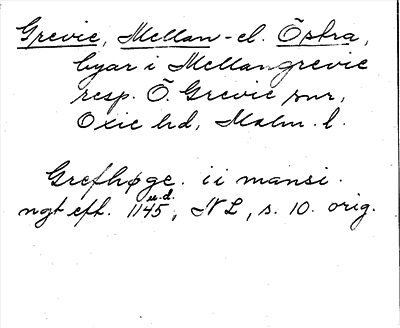 Grevie, Mellan- el. Östra,
byar i Mellangrevie
resp. Ö. Grevie snr,
Oxie hd, Malm. l.
Grefhøge. ii mansi.
ngt eft. 1145 u.d., NL, s. 10. orig.